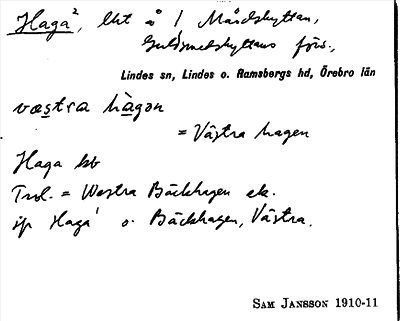 Haga², lht å 1 Mårdshyttan,
Guldsmedshyttans förs.,
Lindes sn, Lindes o. Ramsbergs hd, Örebro län
væstra hàgan
= Västra hagen
Haga kb
Trol. = Westra Bäckhagen ek.
jfr Haga¹ o. Bäckhagen, Västra.
SAM JANSSON 1910-11